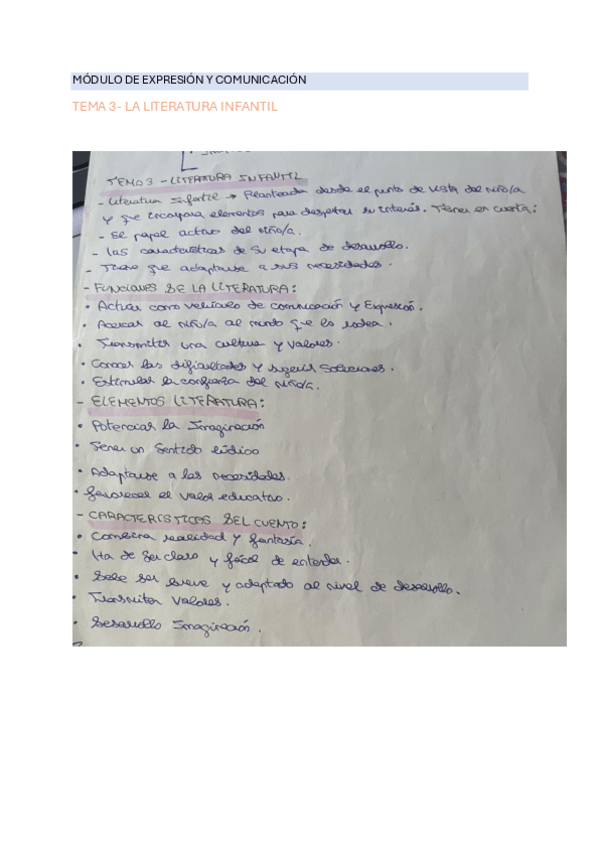 MÓDULO DE EXPRESIÓN Y COMUNICACIÓN
TEMA 3- LA LITERATURA INFANTIL
TEMA 3 - LITERATURA INFANTIL
- Literatura Infantil → Planteada desde el punto de vista del niño/a
y que incorpora elementos para despertar su interés. Tener en cuenta:
- El papel activo del niño/a.
- Las características de su etapa de desarrollo.
- Tiene que adaptarse a sus necesidades.
- FUNCIONES DE LA LITERATURA:
• Actuar como vehículo de comunicación y Expresión.
• Acercar al niño/a al mundo que lo rodea.
• Transmitir una cultura y valores.
• Conocer las dificultades y sugerir soluciones.
• Estimular la confianza del niño/a.
- ELEMENTOS LITERATURA:
• Potenciar la Imaginación
• Tener un Sentido lúdico
• Adaptarse a las necesidades.
• favorecer el valor educativo.
- CARACTERÍSTICAS DEL CUENTO:
• Combina realidad y fantasía.
• Ha de ser claro y fácil de entender.
• Debe ser breve y adaptado al nivel de desarrollo.
• Transmiten Valores.
• Desarrollo Imaginación.